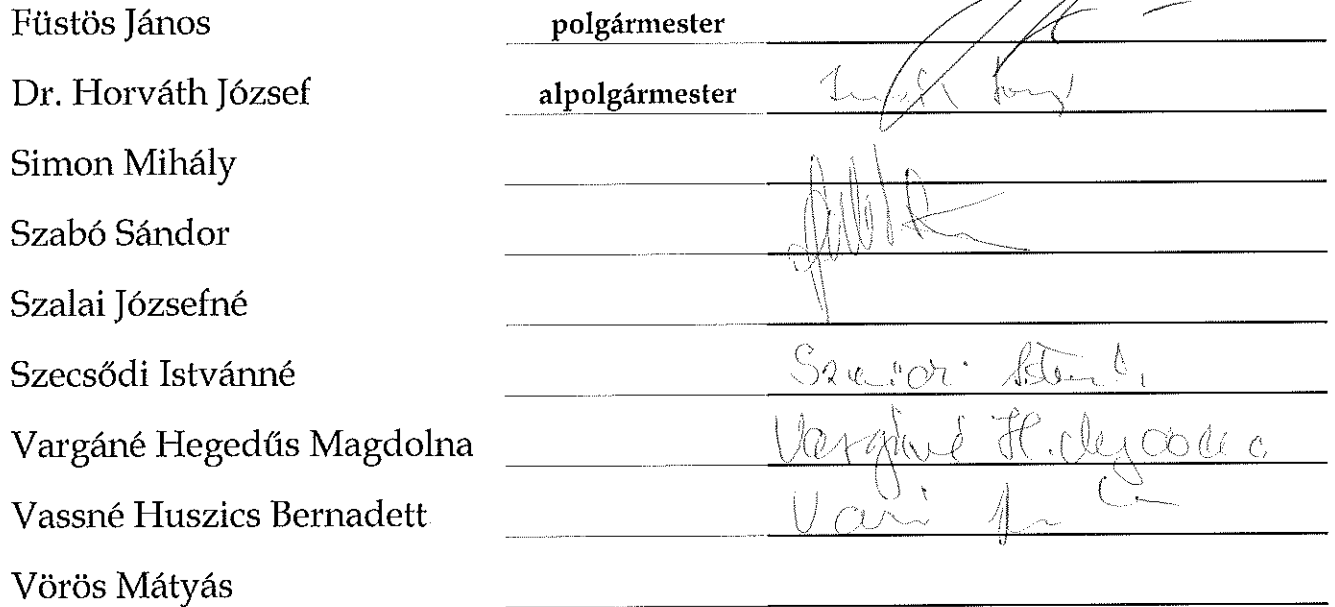 Füstös János polgármester
Dr. Horváth József alpolgármester
Simon Mihály
Szabó Sándor
Szalai Józsefné
Szecsődi Istvánné
Vargáné Hegedűs Magdolna Vargáné
Vassné Huszics Bernadett
Vörös Mátyás